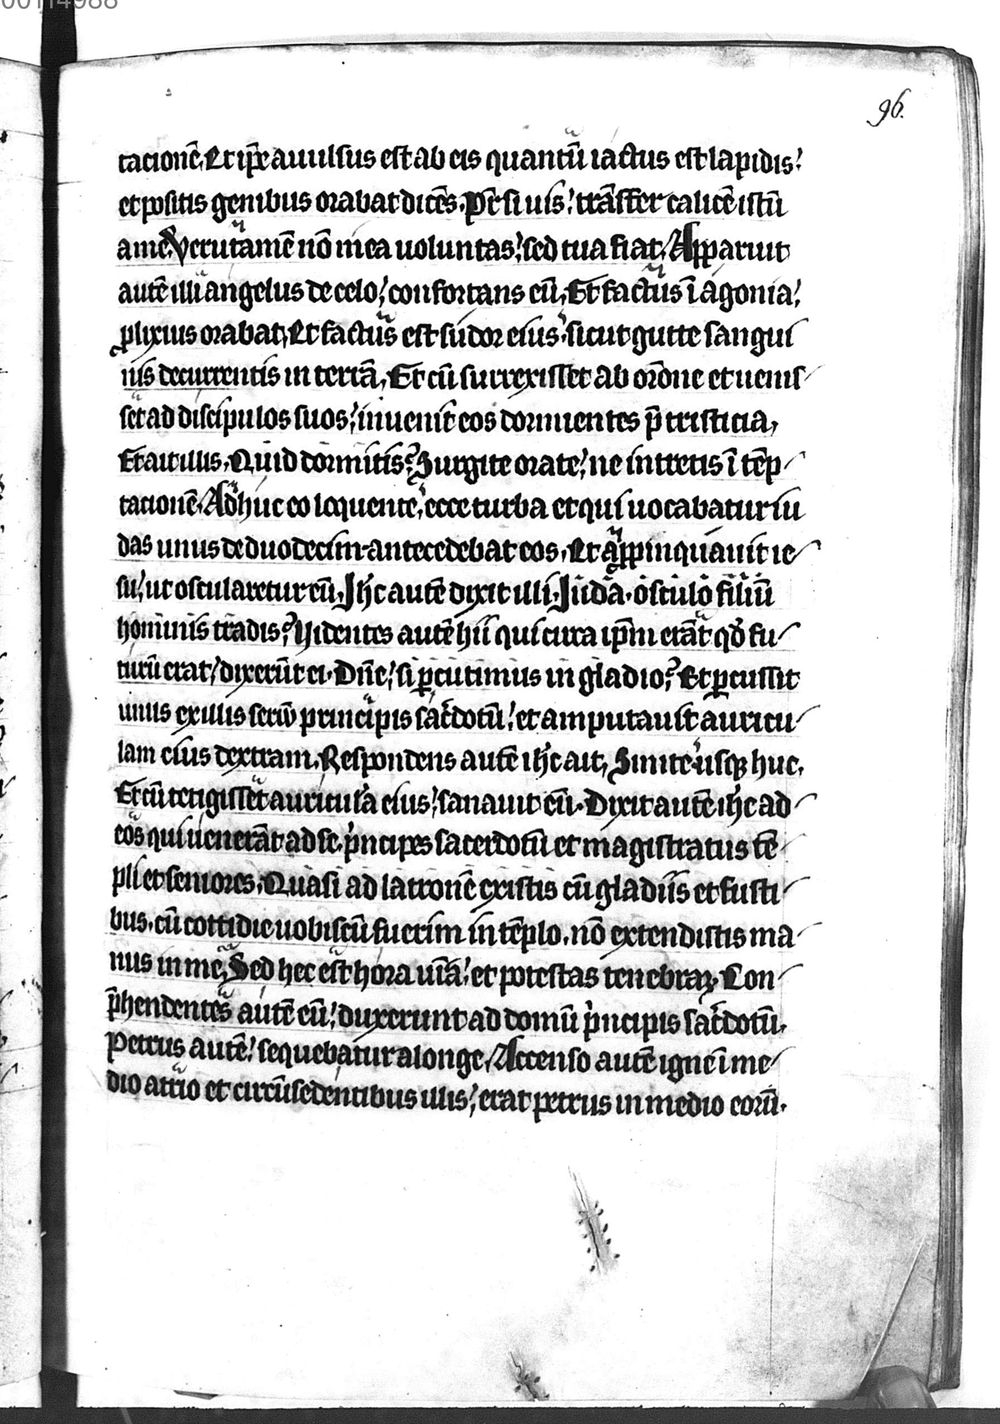 00114988
96.
tacionē. Et ip̄e auulsus est ab eis quantū iactus est lapidis;
et positis genibus orabat dicēs. Pr̄ si uis; trāsfer calicē istū
a me. Verūtamē nō mea uoluntas; sed tua fiat. Apparuit
autē illi angelus de celo; confortans eū. Et factus ī agonia;
ꝓlixius orabat. Et factus est sudor eius; sicut gutte sangui
nis decurrentis in terrā. Et cū surrexisset ab orōne et uenis
set ad discipulos suos; inuenit eos dormientes p̄ tristicia,
Et ait illis. Quid dormitis? Surgite orate; ne intretis ī tēp
tacionē. Adhuc eo loquente; ecce turba et qui uocabatur iu
das unus de duodecim antecedebat eos. Et aꝓpinquauit ie
su; ut oscularetur eū. Ihc̄ autē dixit illi. Iuda osculo filiū
hominis tradis? Videntes autē hii qui circa ip̄m erāt qd̄ fu
turū erat; dixerūt ei. Dn̄e; si ꝑcutimus in gladio? Et ꝑcussit
unus ex illis seruū principis sac̄dotū; et amputauit auricu
lam eius dextram. Respondens autē ihc̄ ait. Sinite usqꝫ huc.
Et cū tetigisset auriculā eius; sanauit eū. Dixit autē ihc̄ ad
eos qui uenerāt ad se. pͥncipes sacerdotū et magistratus tē
pli et seniores. Quasi ad latronē existis cū gladiis et fusti
bus. cū cottidie uobiscū fuerim in tēplo. nō extendistis ma
nus in me. Sed hec est hora ur̄a; et potestas tenebraꝝ. Con
p̄hendentes autē eū; duxerunt ad domū pͥncipis sac̄dotū.
Petrus autē; sequebatur a longe. Accenso autē igne ī me
dio atrio et circūsedentibus illis; erat petrus in medio eorū.